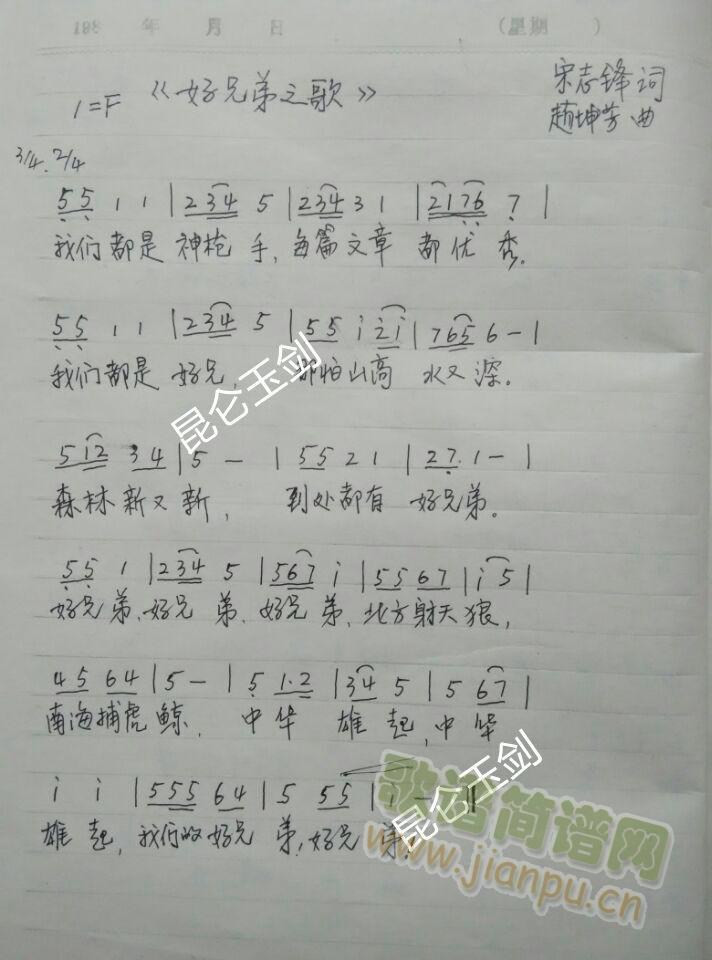 198 年 月 日 (星期 )
1=F 《好兄弟之歌》 宋志锋词
赵坤芳曲
3/4. 2/4
5 5 1 1 | 2 3 4 5 | 2 3 4 3 1 | 2 1 7 6 7 |
我们都是神枪手，每篇文章都优秀。
5 5 1 1 | 2 3 4 5 | 5 5 i 2 i | 7 6 5 6 - |
我们都是好兄，那怕山高水又深。
5 1 2 3 4 | 5 - | 5 5 2 1 | 2 7. 1 - |
森林新又新，到处都有好兄弟。
5 5 1 | 2 3 4 5 | 5 6 7 i | 5 5 6 7 | i 5 |
好兄弟，好兄弟，好兄弟，北方射天狼，
4 5 6 4 | 5 - | 5 1·2 | 3 4 5 | 5 6 7 |
南海捕虎鲸，中华雄起，中华
i i | 5 5 5 6 4 | 5 5 5 | i - ||
雄起，我们的好兄弟，好兄弟。
昆仑玉剑
昆仑玉剑
歌谱简谱网
www.jianpu.cn